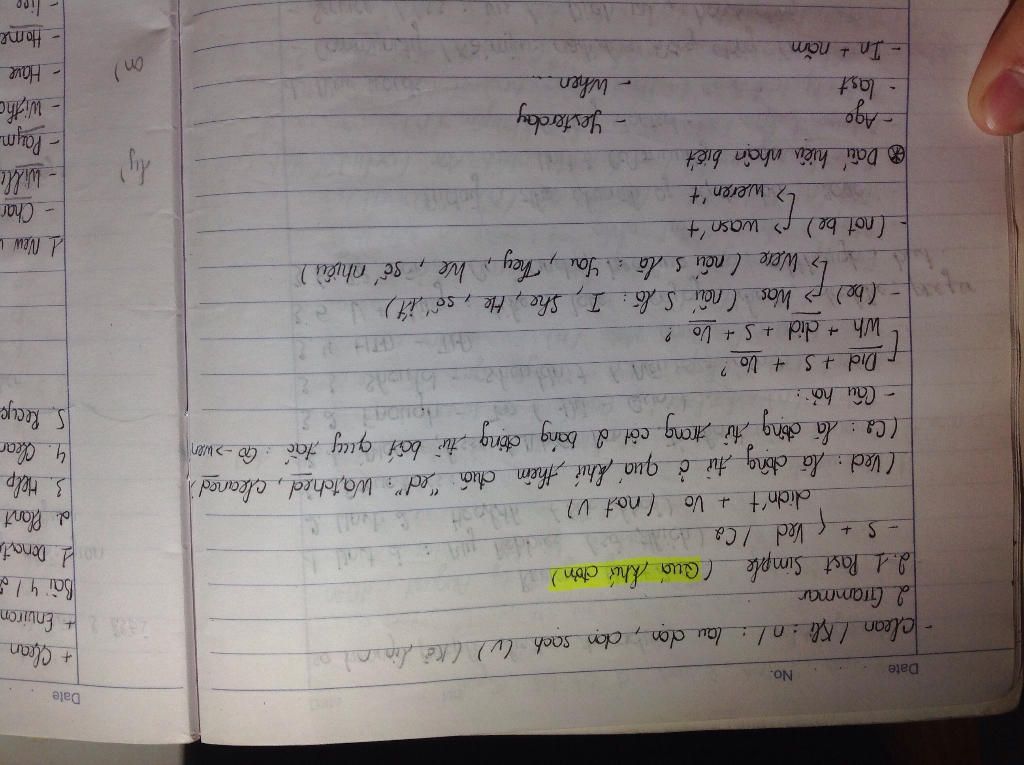 Date No.
- Clean /Kli:n/ : lau dọn, dọn sạch (v)
2 Grammar
2.1 Past Simple (Quá khứ đơn)
- S + { Ved / C2
didn't + Vo (not V)
(Ved: là động từ ở quá khứ thêm đuôi "ed": Watched, cleaned)
(C2: là động từ trong cột 2 bảng động từ bất quy tắc: Go -> wen
- Câu hỏi:
[ Did + S + Vo?
Wh + did + S + Vo ?
- (be) [-> Was (nếu S là: I, She, He, số ít)
-> Were (nếu S là: You, They, We, số nhiều)
- (not be) [-> wasn't
-> weren't
⊛ Dấu hiệu nhận biết
- Ago - Yesterday
- last - When...
- In + năm
Date
+ Clean
+ Environ
Bài 4 / 2
1. Donate
2. Plant
3. Help
4. Clean
5. Recyc
1 New
- Char
- Paym
- Witho
- Have
- Home